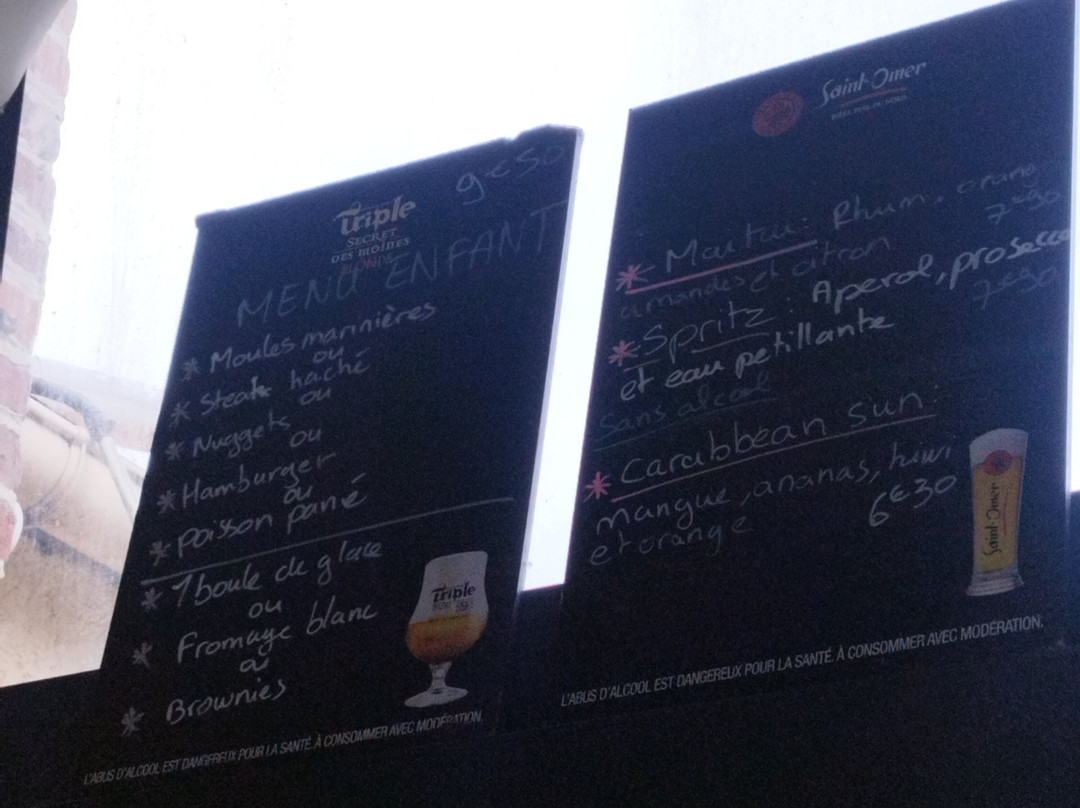 9€50
Triple
SECRET
DES MOINES
BLONDE
MENU ENFANT
* Moules marinières
ou
* Steak haché
ou
* Nuggets
ou
* Hamburger
ou
* poisson pané
* 1 boule de glace
ou
* Fromage blanc
ou
* Brownies
Triple
L'ABUS D'ALCOOL EST DANGEREUX POUR LA SANTÉ. À CONSOMMER AVEC MODÉRATION.
Saint-Omer
* Maitai: Rhum, orang
7€90
amandes et citron
* Spritz: Aperol, prosecco
7€90
et eau petillante
Sans alcool
* Carabbean sun:
mangue, ananas, kiwi
et orange
6€30
Saint-Omer
L'ABUS D'ALCOOL EST DANGEREUX POUR LA SANTÉ. À CONSOMMER AVEC MODÉRATION.